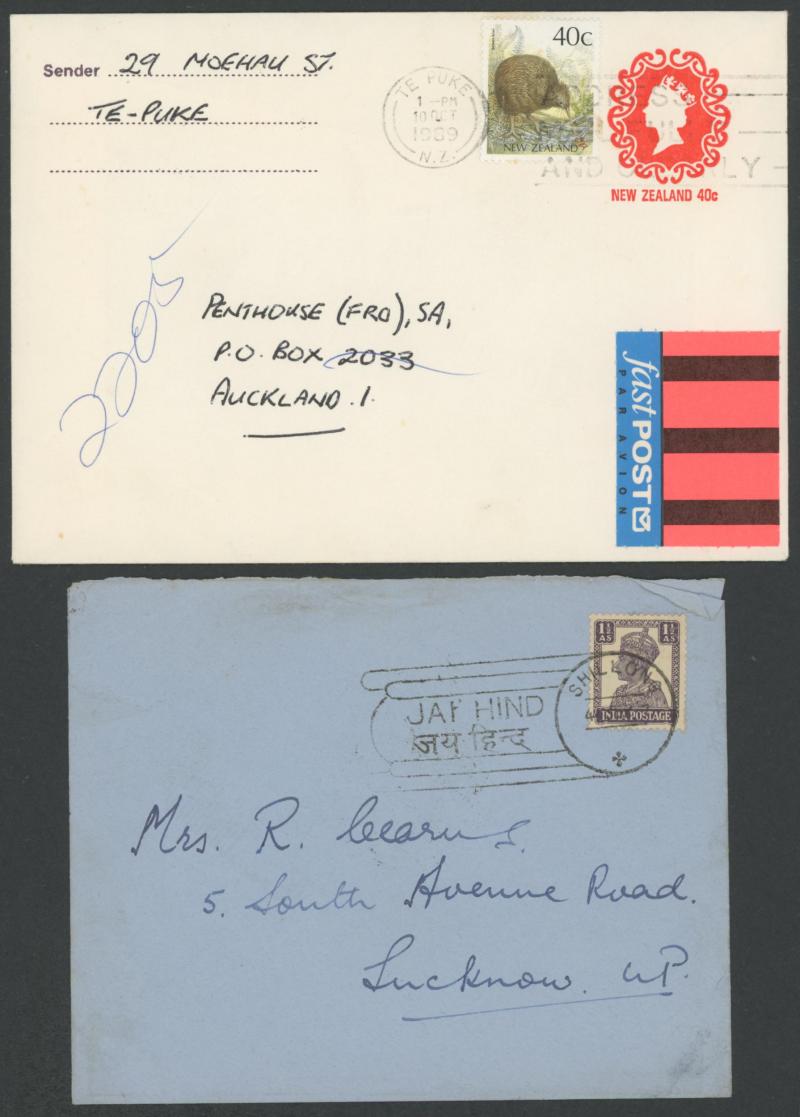 Sender 29 MOEHAU ST.
TE-PUKE
TE PUKE
1 -PM
10 OCT
1989
N.Z.
40c
NEW ZEALAND
AND
LY
NEW ZEALAND 40c
2205
PENTHOUSE (FRO), SA,
P.O. BOX 2033
AUCKLAND.1.
fast POST
PAR AVION
1½ AS
INDIA POSTAGE
SHILLO
JAI HIND
जय हिन्द
Mrs. R.
5. South Avenue Road.
Lucknow. UP.